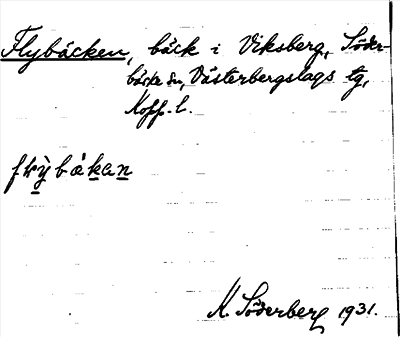 Flybäcken, bäck i Viksberg, Söder-
bärke sn, Västerbergslags tg,
Kopp. l.
flỳbäkan
K. Söderberg 1931.